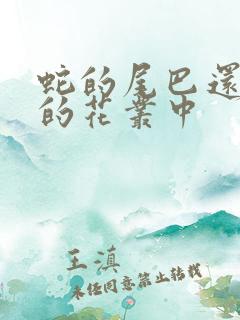 蛇的尾巴還
的花叢中
王滇
未经同意禁止转载